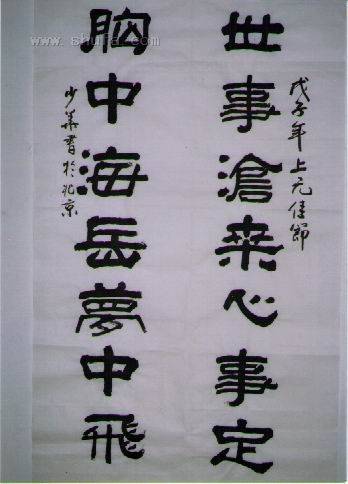 戊子年上元佳節
世事滄桒心事定
胸中海岳夢中飛
少華書於北京
www.shufa.com